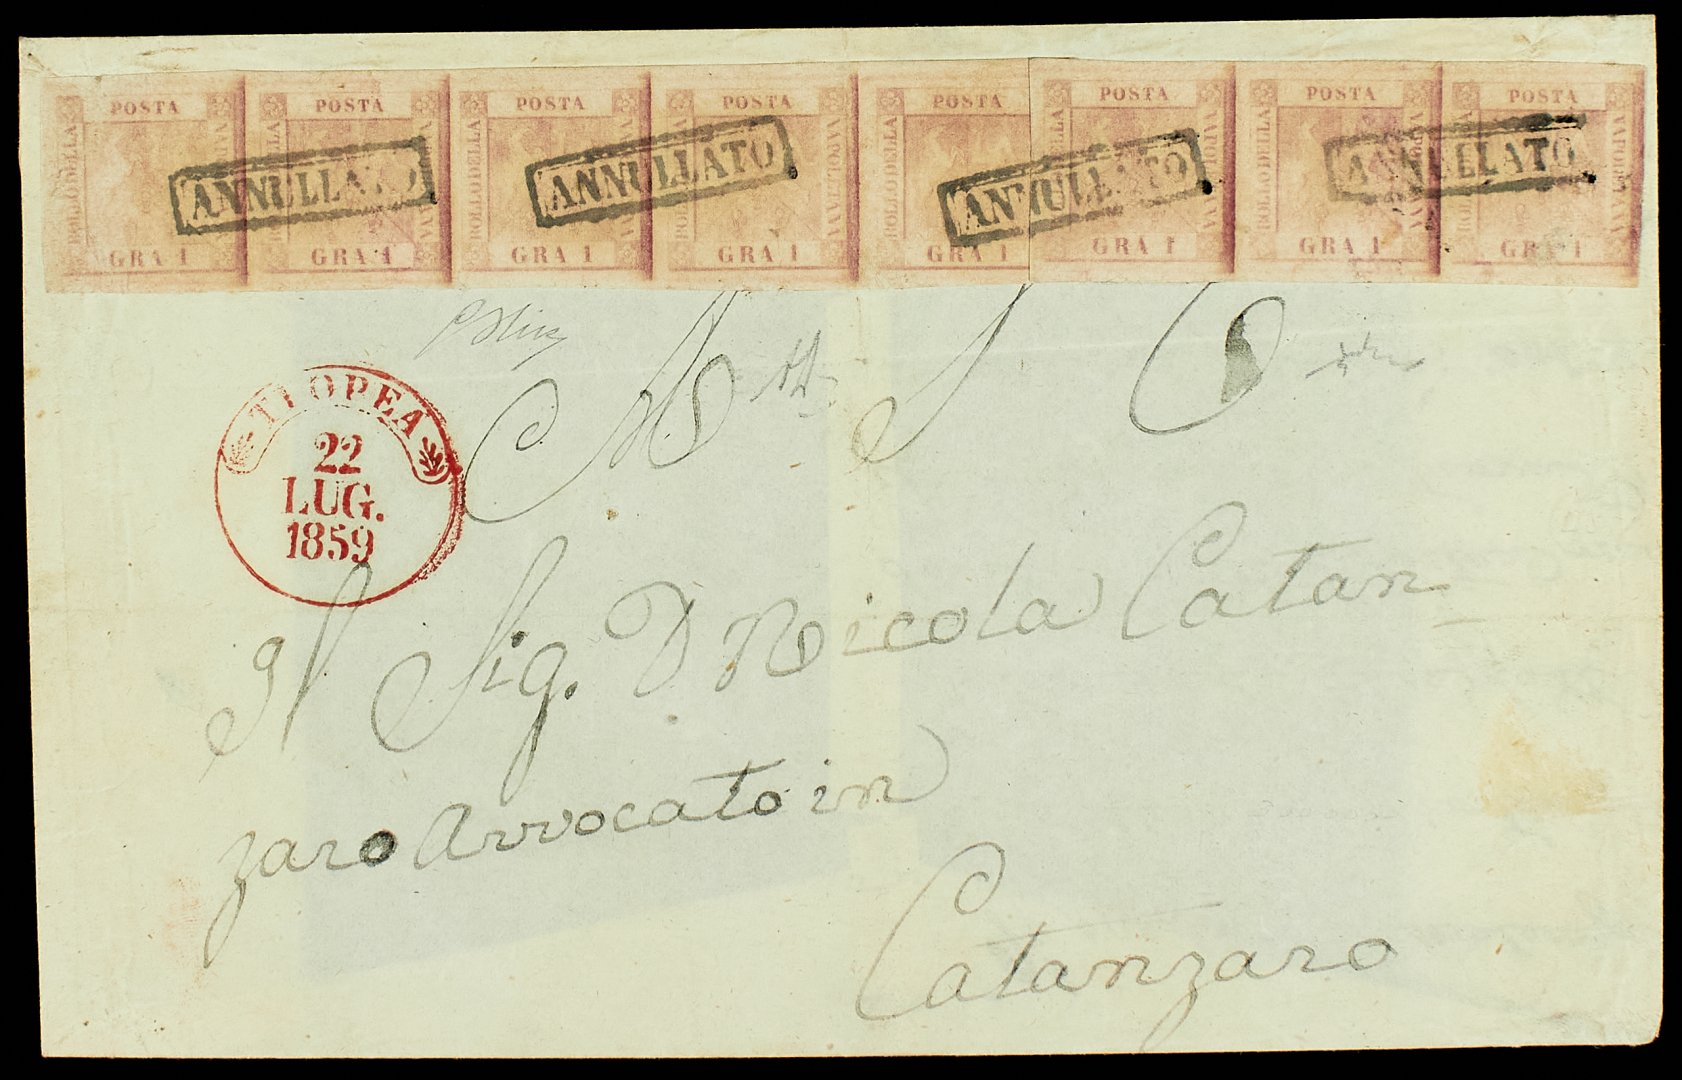 POSTA POSTA POSTA POSTA POSTA POSTA POSTA POSTA
BOLLO DELLA BOLLO DELLA BOLLO DELLA BOLLO DELLA BOLLO DELLA BOLLO DELLA BOLLO DELLA BOLLO DELLA
NAPOLETANA NAPOLETANA NAPOLETANA NAPOLETANA NAPOLETANA NAPOLETANA NAPOLETANA
ANNULLATO ANNULLATO ANNULLATO ANNULLATO
GRA 1 GRA 1 GRA 1 GRA 1 GRA 1 GRA 1 GRA 1 GRA 1
TROPEA
22
LUG.
1859
Al Sig. D Nicola Catan
zaro Avvocato in
Catanzaro